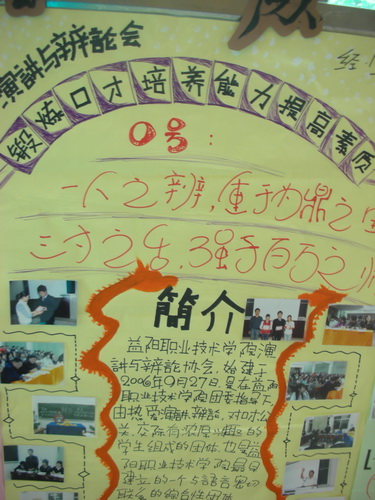 演讲与辩论会
锻炼口才培养能力提高素质
口号：
一人之辩，重于九鼎之
三寸之舌，强于百万之师
簡介
益阳职业技术学院演
讲与辩论协会，始建于
2006年9月27日是在益阳
职业技术学院团委指导下
由热爱演讲、辩论，对口才公
关，交际有浓厚兴趣的
学生组成的团体，也是益
阳职业技术学院最早
建立的一个与语言密切